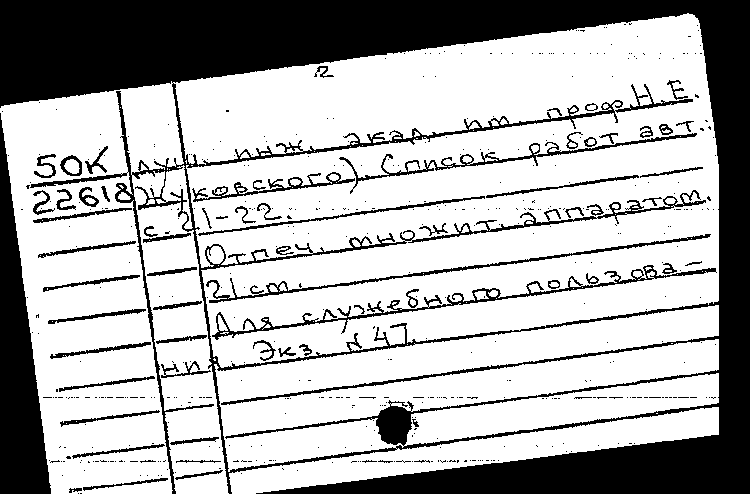 2
50К душ. инж. акад. им. проф. Н. Е.
22618 Жуковского). Список работ авт.:
с. 21-22.
Отпеч. множит. аппаратом.
21 cm.
Для служебного пользова-
ния. Экз. N 47.